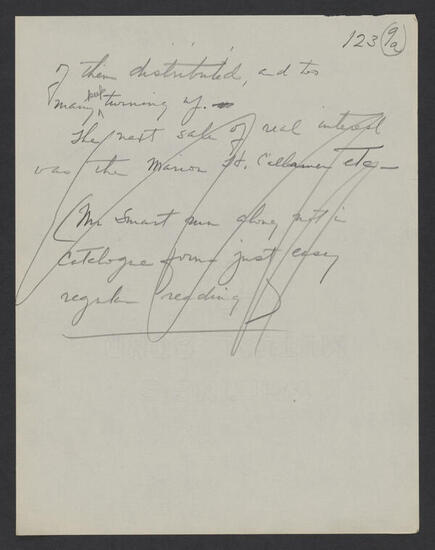 123 9a
of them distributed, and too
many not turning up. —
The next sale of real interest
was the Marion St. Cellamer etc —
(Mr Smart run along not in
Catalogue form just easy
regular reading)